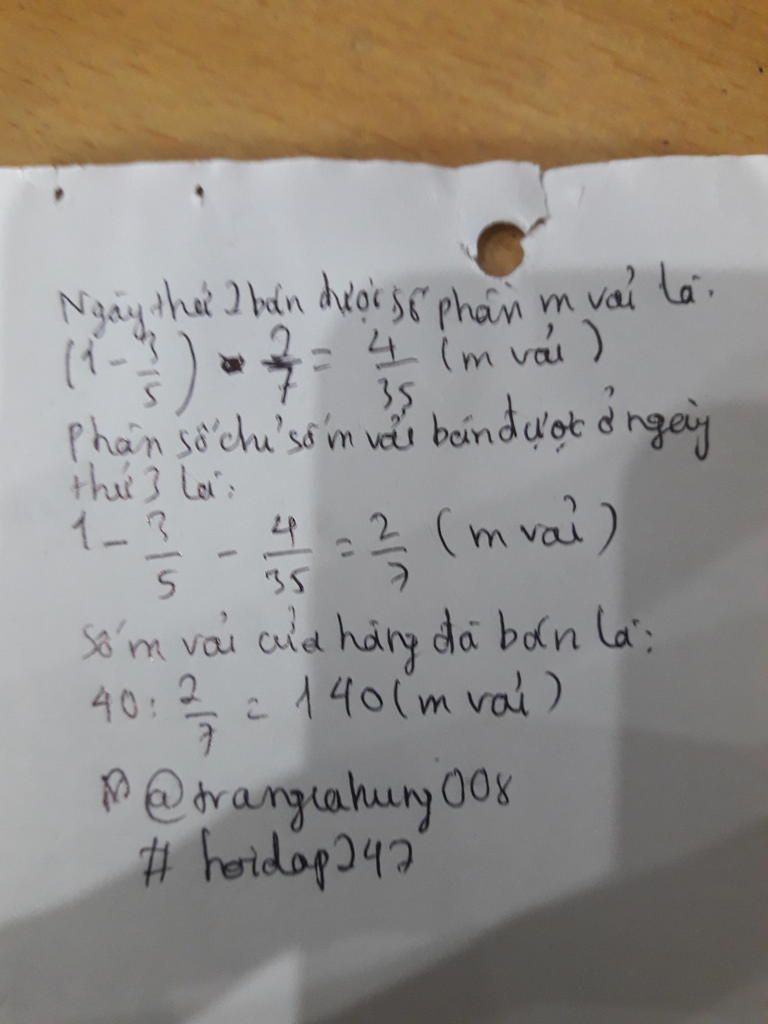 Ngày thứ 2 bán được số phần m vải là:
(1 - 3/5) · 2/7 = 4/35 (m vải)
Phân số chỉ số m vải bán được ở ngày
thứ 3 là:
1 - 3/5 - 4/35 = 2/7 (m vải)
Số m vải cửa hàng đã bán là:
40 : 2/7 = 140 (m vải)
@trangiahung008
# hoidap247